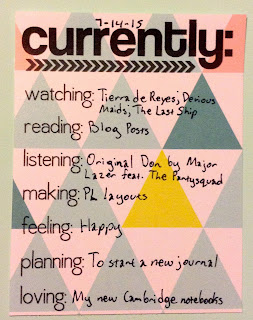 7-14-15
currently:
watching: Tierra de Reyes; Devious
Maids; The Last Ship
reading: Blog Posts
listening: Original Don by Major
Lazer feat. The Partysquad
making: PL layouts
feeling: Happy
planning: To start a new journal
loving: My new Cambridge notebooks